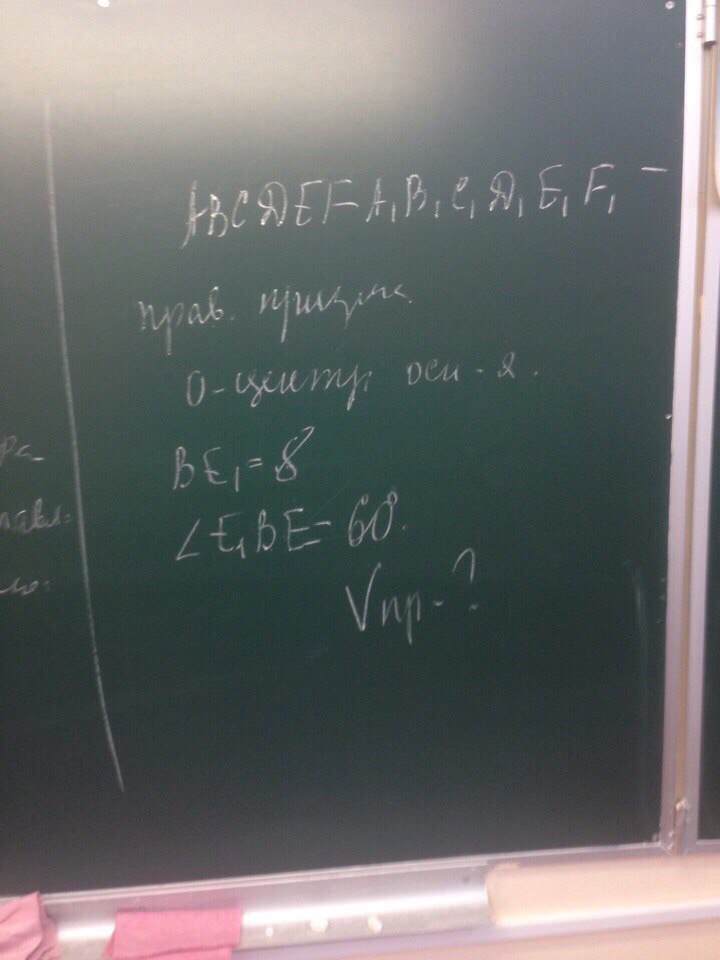 ABCDEFA₁B₁C₁D₁E₁F₁ –
прав. призма.
O-центр осн-я.
BE₁=8
∠E₁BE=60°.
Vпр-?